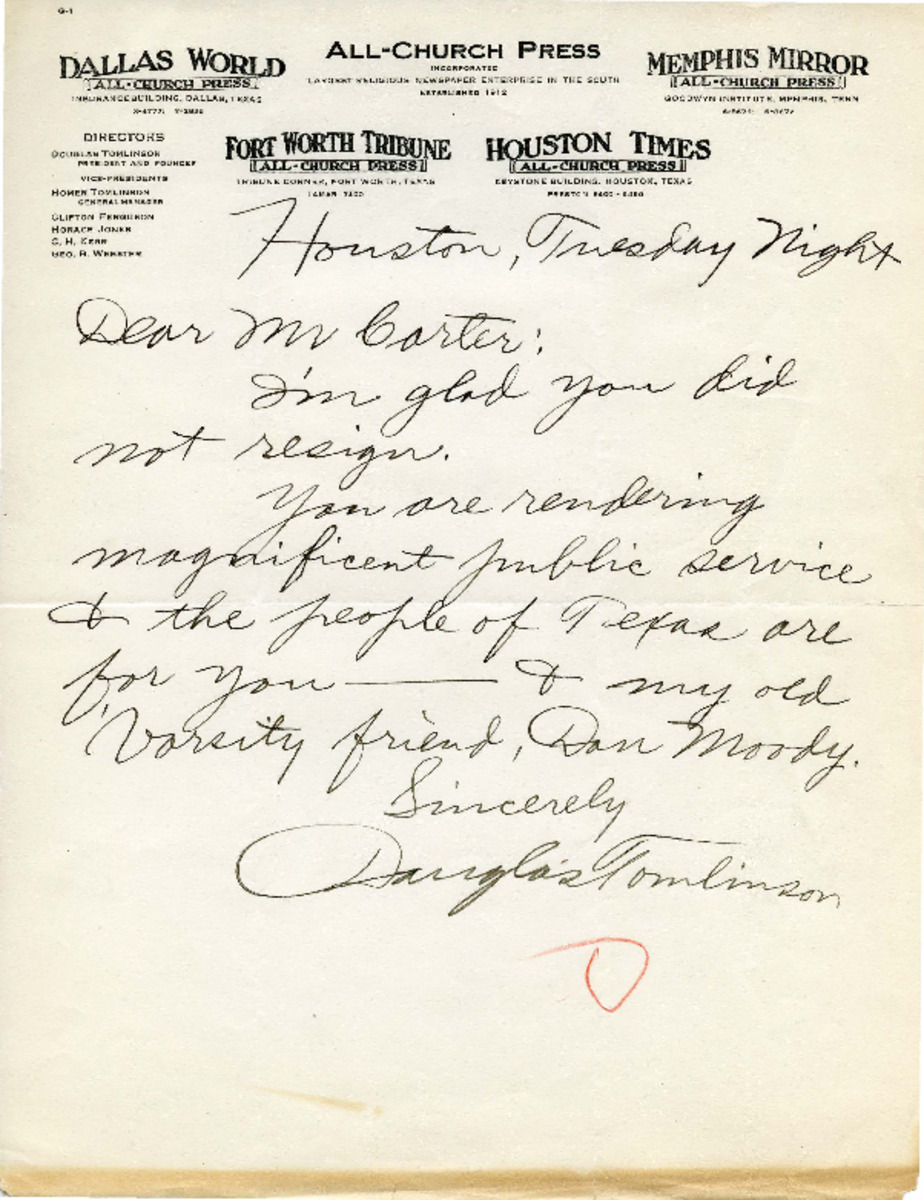 G-1
DALLAS WORLD
ALL-CHURCH PRESS
INSURANCE BUILDING, DALLAS, TEXAS
ALL-CHURCH PRESS
INCORPORATED
LARGEST RELIGIOUS NEWSPAPER ENTERPRISE IN THE SOUTH
ESTABLISHED 1912
MEMPHIS MIRROR
ALL-CHURCH PRESS
GOODWYN INSTITUTE, MEMPHIS, TENN
DIRECTORS
DOUGLAS TOMLINSON
PRESIDENT AND FOUNDER
VICE-PRESIDENTS
HOMER TOMLINSON
GENERAL MANAGER
CLIFTON FERGUSON
HORACE JONES
C. H. KERR
GEO. R. WEBSTER
FORT WORTH TRIBUNE
ALL-CHURCH PRESS
TRIBUNE CORNER, FORT WORTH, TEXAS
LAMAR
HOUSTON TIMES
ALL-CHURCH PRESS
KEYSTONE BUILDING, HOUSTON, TEXAS
PRESTON
Houston, Tuesday Night
Dear Mr Carter:
I'm glad you did
not resign.
You are rendering
magnificent public service
& the people of Texas are
for you — & my old
'Varsity friend, Dan Moody.
Sincerely
Douglas Tomlinson